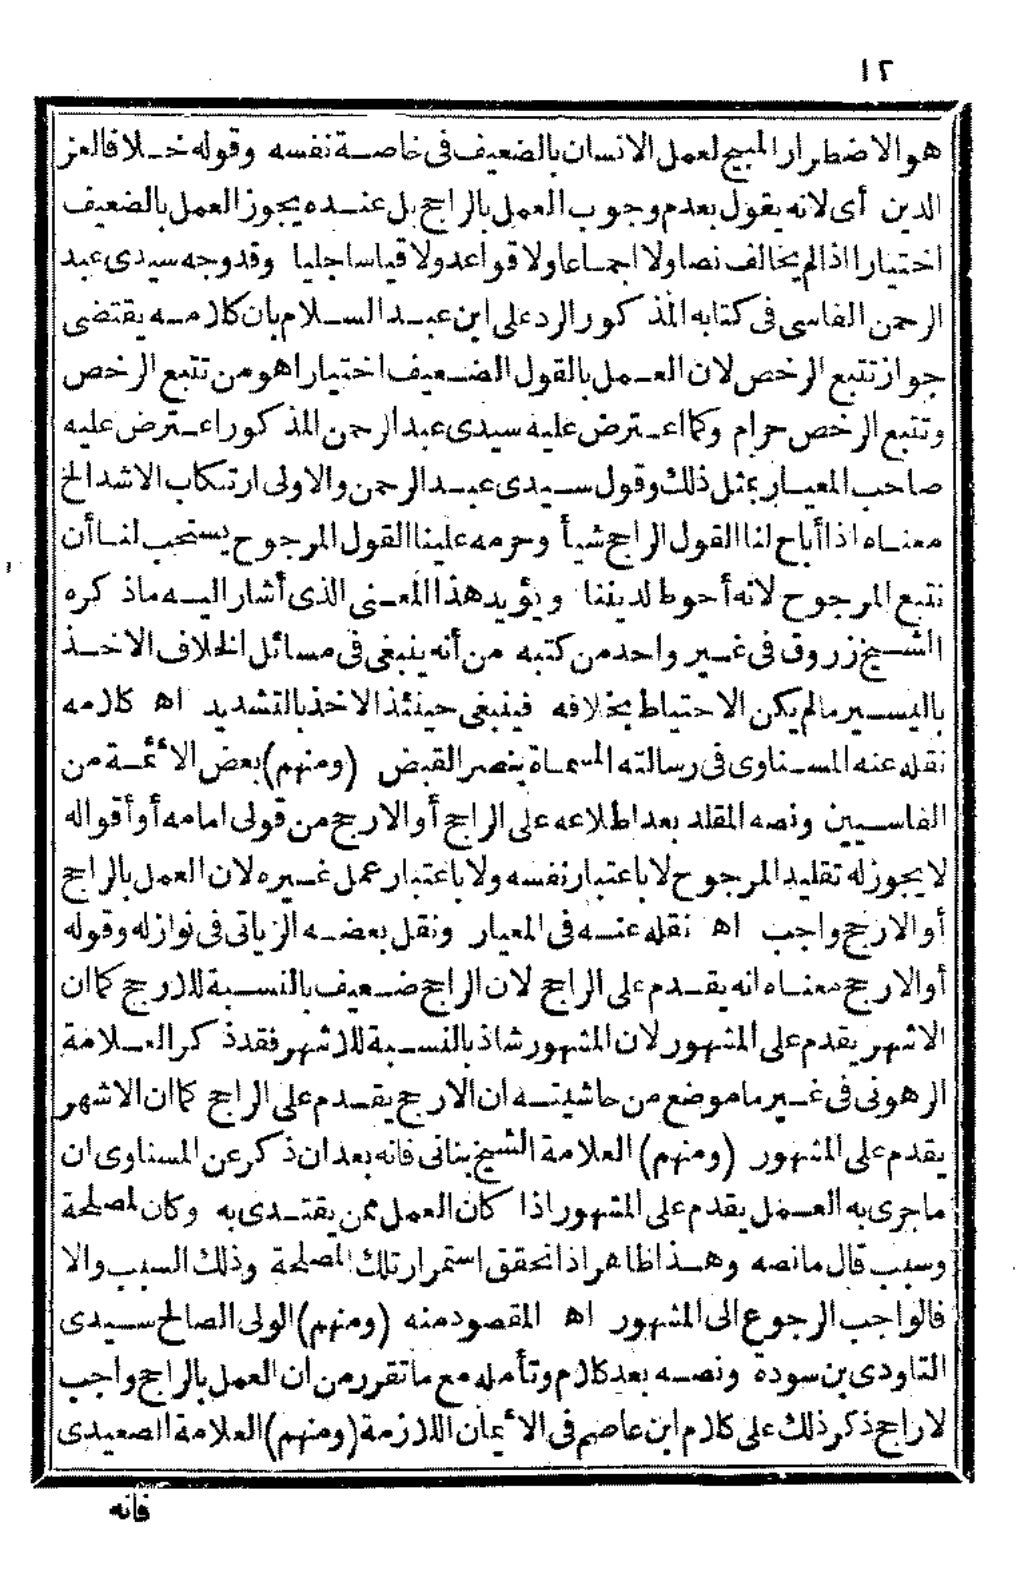 ١٢
هو الاضطرار المبيح لعمل الانسان بالضعيف فى خاصة نفسه وقوله خلافا لعز
الدين أى لانه يقول بعدم وجوب العمل بالراجح بل عنده يجوز العمل بالضعيف
اختيارا اذا لم يخالف نصا ولا اجماعا ولا قواعد ولا قياسا جليا وقد وجه سيدى عبد
الرحمن الفاسى فى كتابه المذكور الرد على ابن عبد السلام بان كلامه يقتضى
جواز تتبع الرخص لان العمل بالقول الضعيف اختيارا هو من تتبع الرخص
وتتبع الرخص حرام وكما اعترض عليه سيدى عبد الرحمن المذكور اعترض عليه
صاحب المعيار بمثل ذلك وقول سيدى عبد الرحمن والاولى ارتكاب الاشد الخ
معناه اذا أباح لنا القول الراجح شيأ وحرمه علينا القول المرجوح يستحب لنا أن
نتبع المرجوح لانه أحوط لديننا ويؤيد هذا المعنى الذى أشار اليه ماذكره
الشيخ زروق فى غير واحد من كتبه من أنه ينبغى فى مسائل الخلاف الاخذ
باليسير مالم يكن الاحتياط بخلافه فينبغى حينئذ الاخذ بالتشديد اه كلامه
نقله عنه المسناوى فى رسالته المسماة بنصر القبض (ومنهم) بعض الأئمة من
الفاسيين ونصه المقلد بعد اطلاعه على الراجح أو الارجح من قولى امامه أو أقواله
لا يجوز له تقليد المرجوح لا باعتبار نفسه ولا باعتبار عمل غيره لان العمل بالراجح
أو الارجح واجب اه نقله عنه فى المعيار ونقل بعضه الزياتى فى نوازله وقوله
أو الارجح معناه انه يقدم على الراجح لان الراجح ضعيف بالنسبة للارجح كما ان
الاشهر يقدم على المشهور لان المشهور شاذ بالنسبة للاشهر فقد ذكر العلامة
الرهونى فى غير ما موضع من حاشيته ان الارجح يقدم على الراجح كما ان الاشهر
يقدم على المشهور (ومنهم) العلامة الشيخ بنانى فانه بعد ان ذكر عن المسناوى ان
ماجرى به العمل يقدم على المشهور اذا كان العمل ممن يقتدى به وكان لمصلحة
وسبب قال مانصه وهذا ظاهر اذا تحقق استمرار تلك المصلحة وذلك السبب والا
فالواجب الرجوع الى المشهور اه المقصود منه (ومنهم) الولى الصالح سيدى
التاودى بن سودة ونصه بعد كلام وتأمله مع ما تقرر من ان العمل بالراجح واجب
لا راجح ذكر ذلك على كلام ابن عاصم فى الأيمان اللازمة (ومنهم) العلامة الصعيدى
فانه